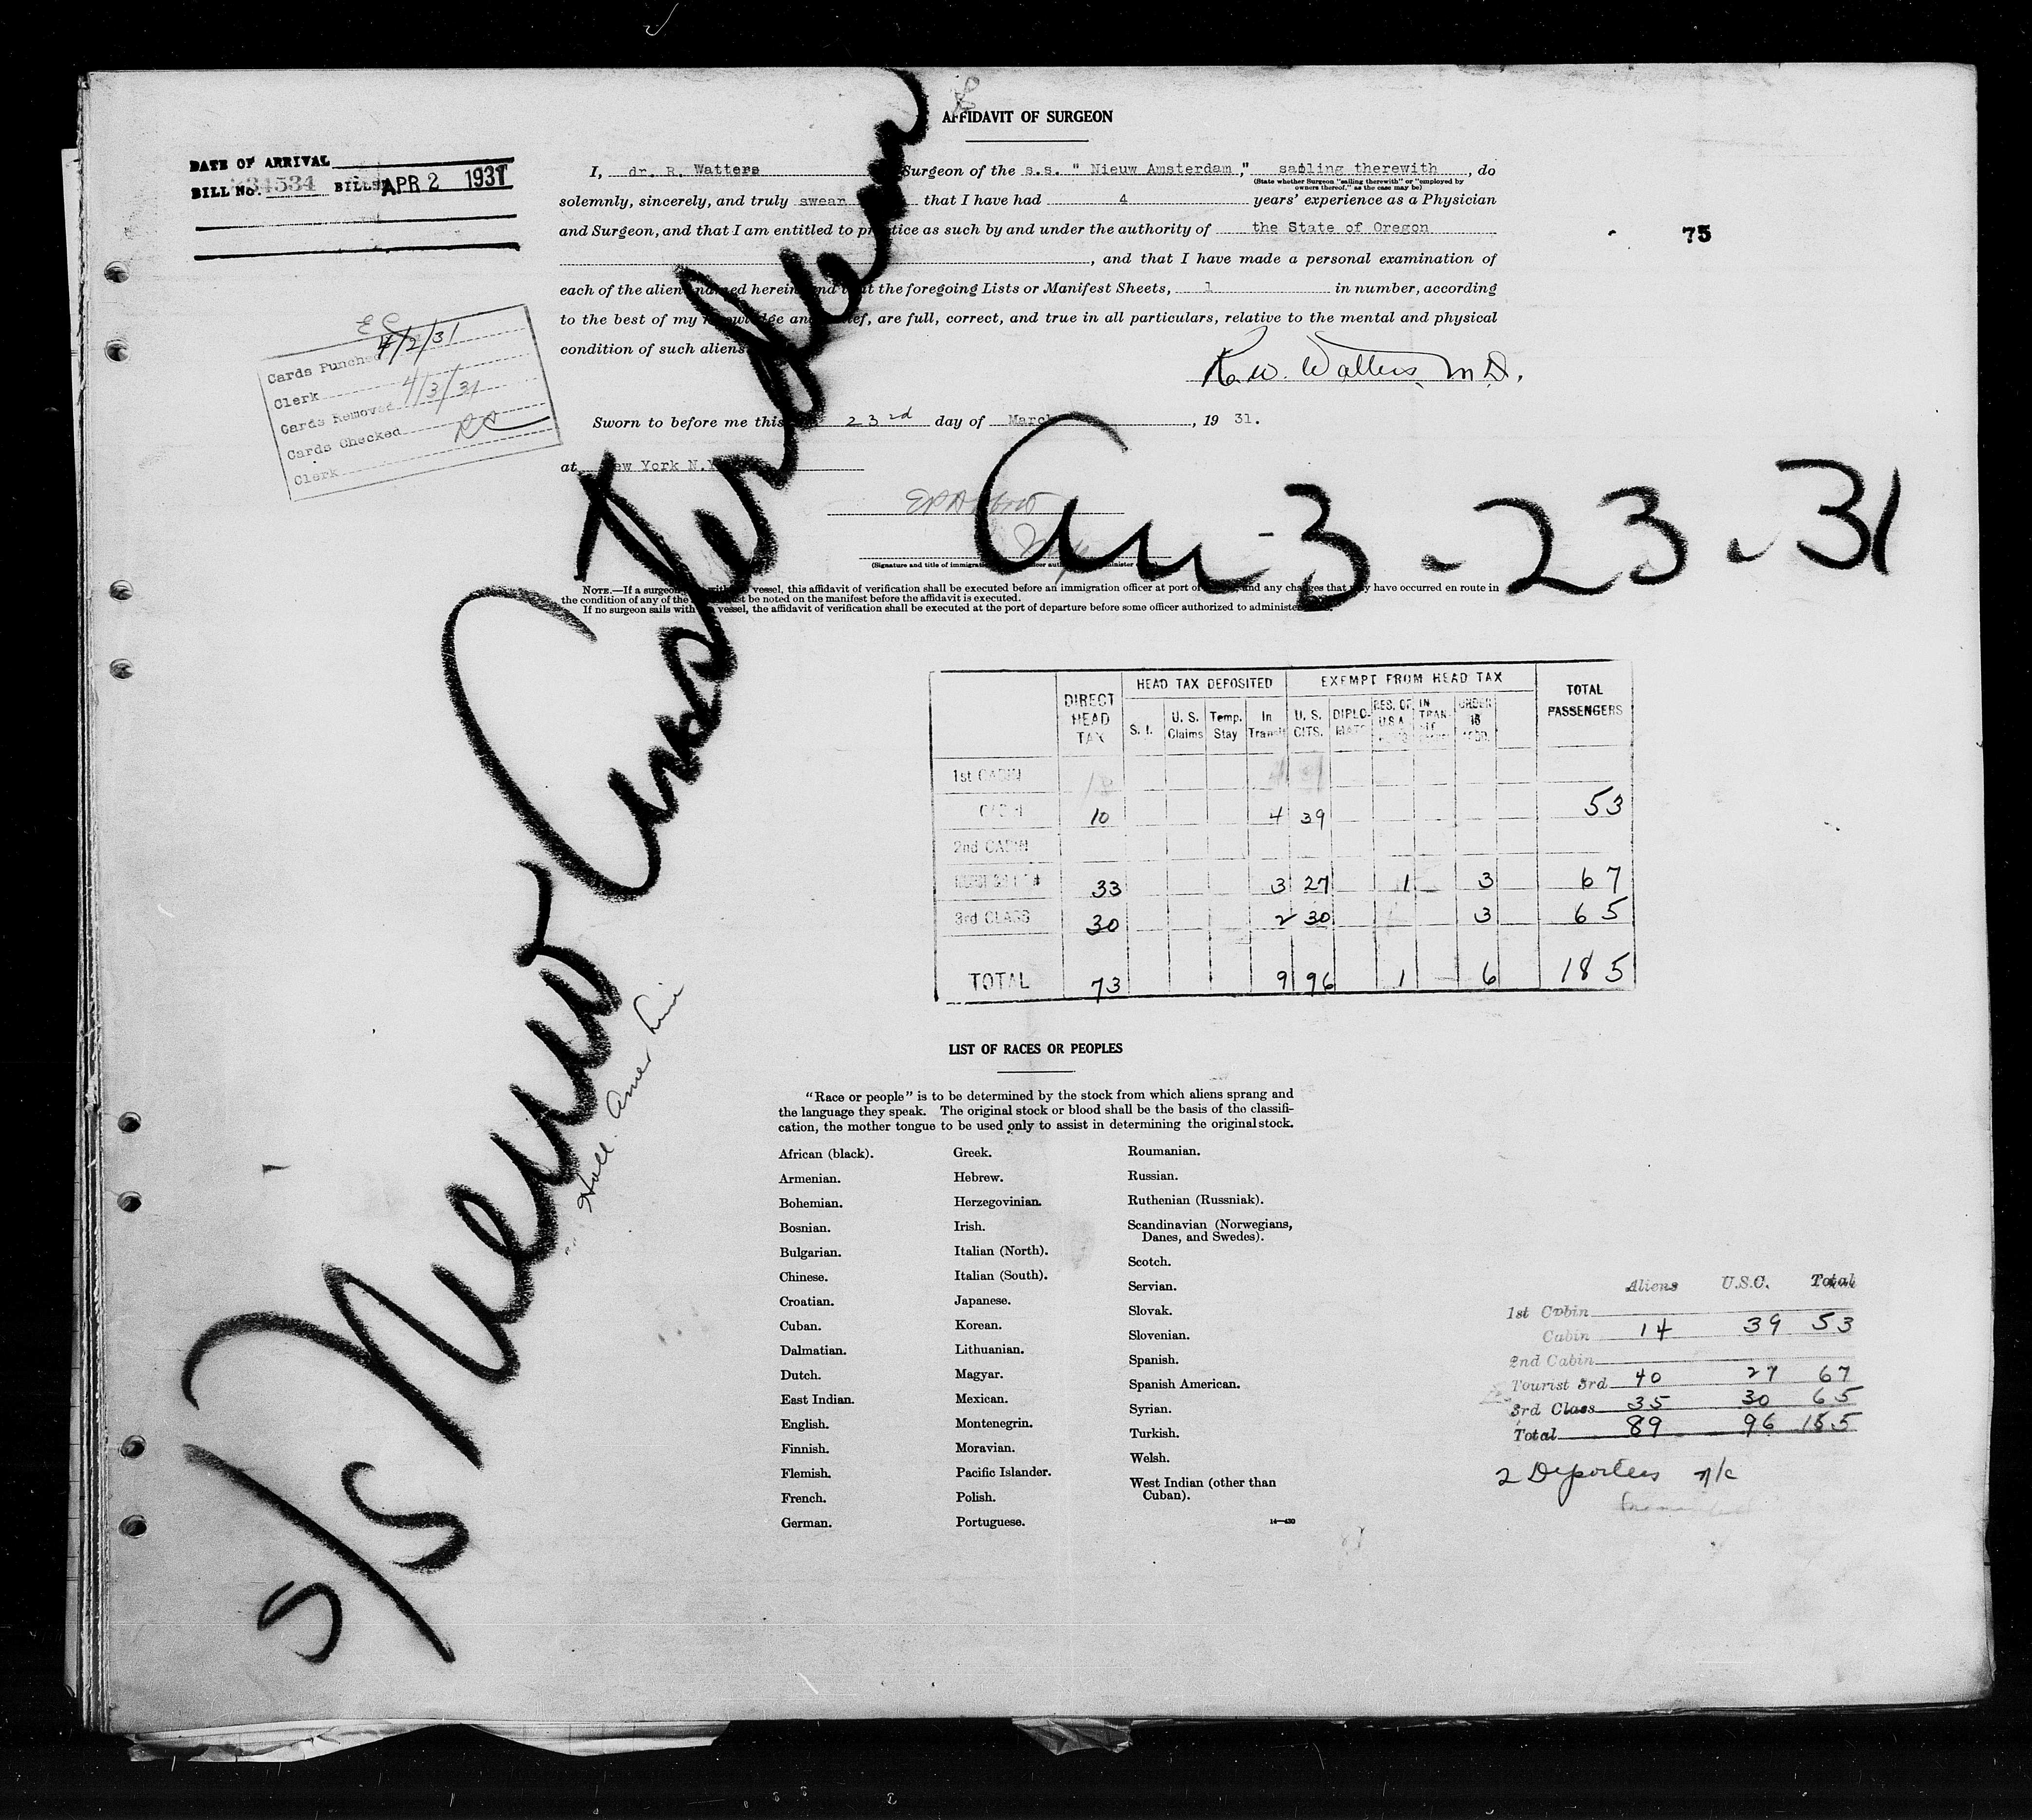 AFFIDAVIT OF SURGEON
DATE OF ARRIVAL
BILL No. 34534 BILLED APR 2 1931
I, dr. R. Watters Surgeon of the s.s. " Nieuw Amsterdam ," sailing therewith , do
(State whether Surgeon "sailing therewith" or "employed by
owners thereof," as the case may be)
solemnly, sincerely, and truly swear that I have had 4 years' experience as a Physician
and Surgeon, and that I am entitled to practice as such by and under the authority of the State of Oregon
75
, and that I have made a personal examination of
each of the aliens named herein and that the foregoing Lists or Manifest Sheets, 1 in number, according
to the best of my knowledge and belief, are full, correct, and true in all particulars, relative to the mental and physical
condition of such aliens
R. W. Watters, M.D.
Cards Punched 4/2/31
Clerk
Cards Removed 4/3/31
Cards Checked
Clerk
Sworn to before me this 23rd day of March , 19 31.
at New York N.Y.
Arr 3 - 23 - 31
(Signature and title of immigration
NOTE.—If a surgeon sails with the vessel, this affidavit of verification shall be executed before an immigration officer at port of and any changes that may have occurred en route in
the condition of any of the must be noted on the manifest before the affidavit is executed.
If no surgeon sails with the vessel, the affidavit of verification shall be executed at the port of departure before some officer authorized to administer
S/S Nieuw Amsterdam
Holl. Amer Line
DIRECT HEAD TAX HEAD TAX DEPOSITED EXEMPT FROM HEAD TAX TOTAL PASSENGERS
S. I. U. S. Claims Temp. Stay In Transit U. S. CITS. DIPLO- MATS RES. OF U.S.A. IN TRAN- SIT UNDER 16
1st CABIN
CABIN 10 4 39 53
2nd CABIN
33 3 27 1 3 67
3rd CLASS 30 2 30 3 65
TOTAL 73 9 96 1 6 185
LIST OF RACES OR PEOPLES
"Race or people" is to be determined by the stock from which aliens sprang and
the language they speak. The original stock or blood shall be the basis of the classifi-
cation, the mother tongue to be used only to assist in determining the original stock.
African (black).
Armenian.
Bohemian.
Bosnian.
Bulgarian.
Chinese.
Croatian.
Cuban.
Dalmatian.
Dutch.
East Indian.
English.
Finnish.
Flemish.
French.
German.
Greek.
Hebrew.
Herzegovinian.
Irish.
Italian (North).
Italian (South).
Japanese.
Korean.
Lithuanian.
Magyar.
Mexican.
Montenegrin.
Moravian.
Pacific Islander.
Polish.
Portuguese.
Roumanian.
Russian.
Ruthenian (Russniak).
Scandinavian (Norwegians,
Danes, and Swedes).
Scotch.
Servian.
Slovak.
Slovenian.
Spanish.
Spanish American.
Syrian.
Turkish.
Welsh.
West Indian (other than
Cuban).
14—430
Aliens U.S.C. Total
1st Cabin
Cabin 14 39 53
2nd Cabin
Tourist 3rd 40 27 67
3rd Class 35 30 65
Total 89 96 185
2 Deportees n/c